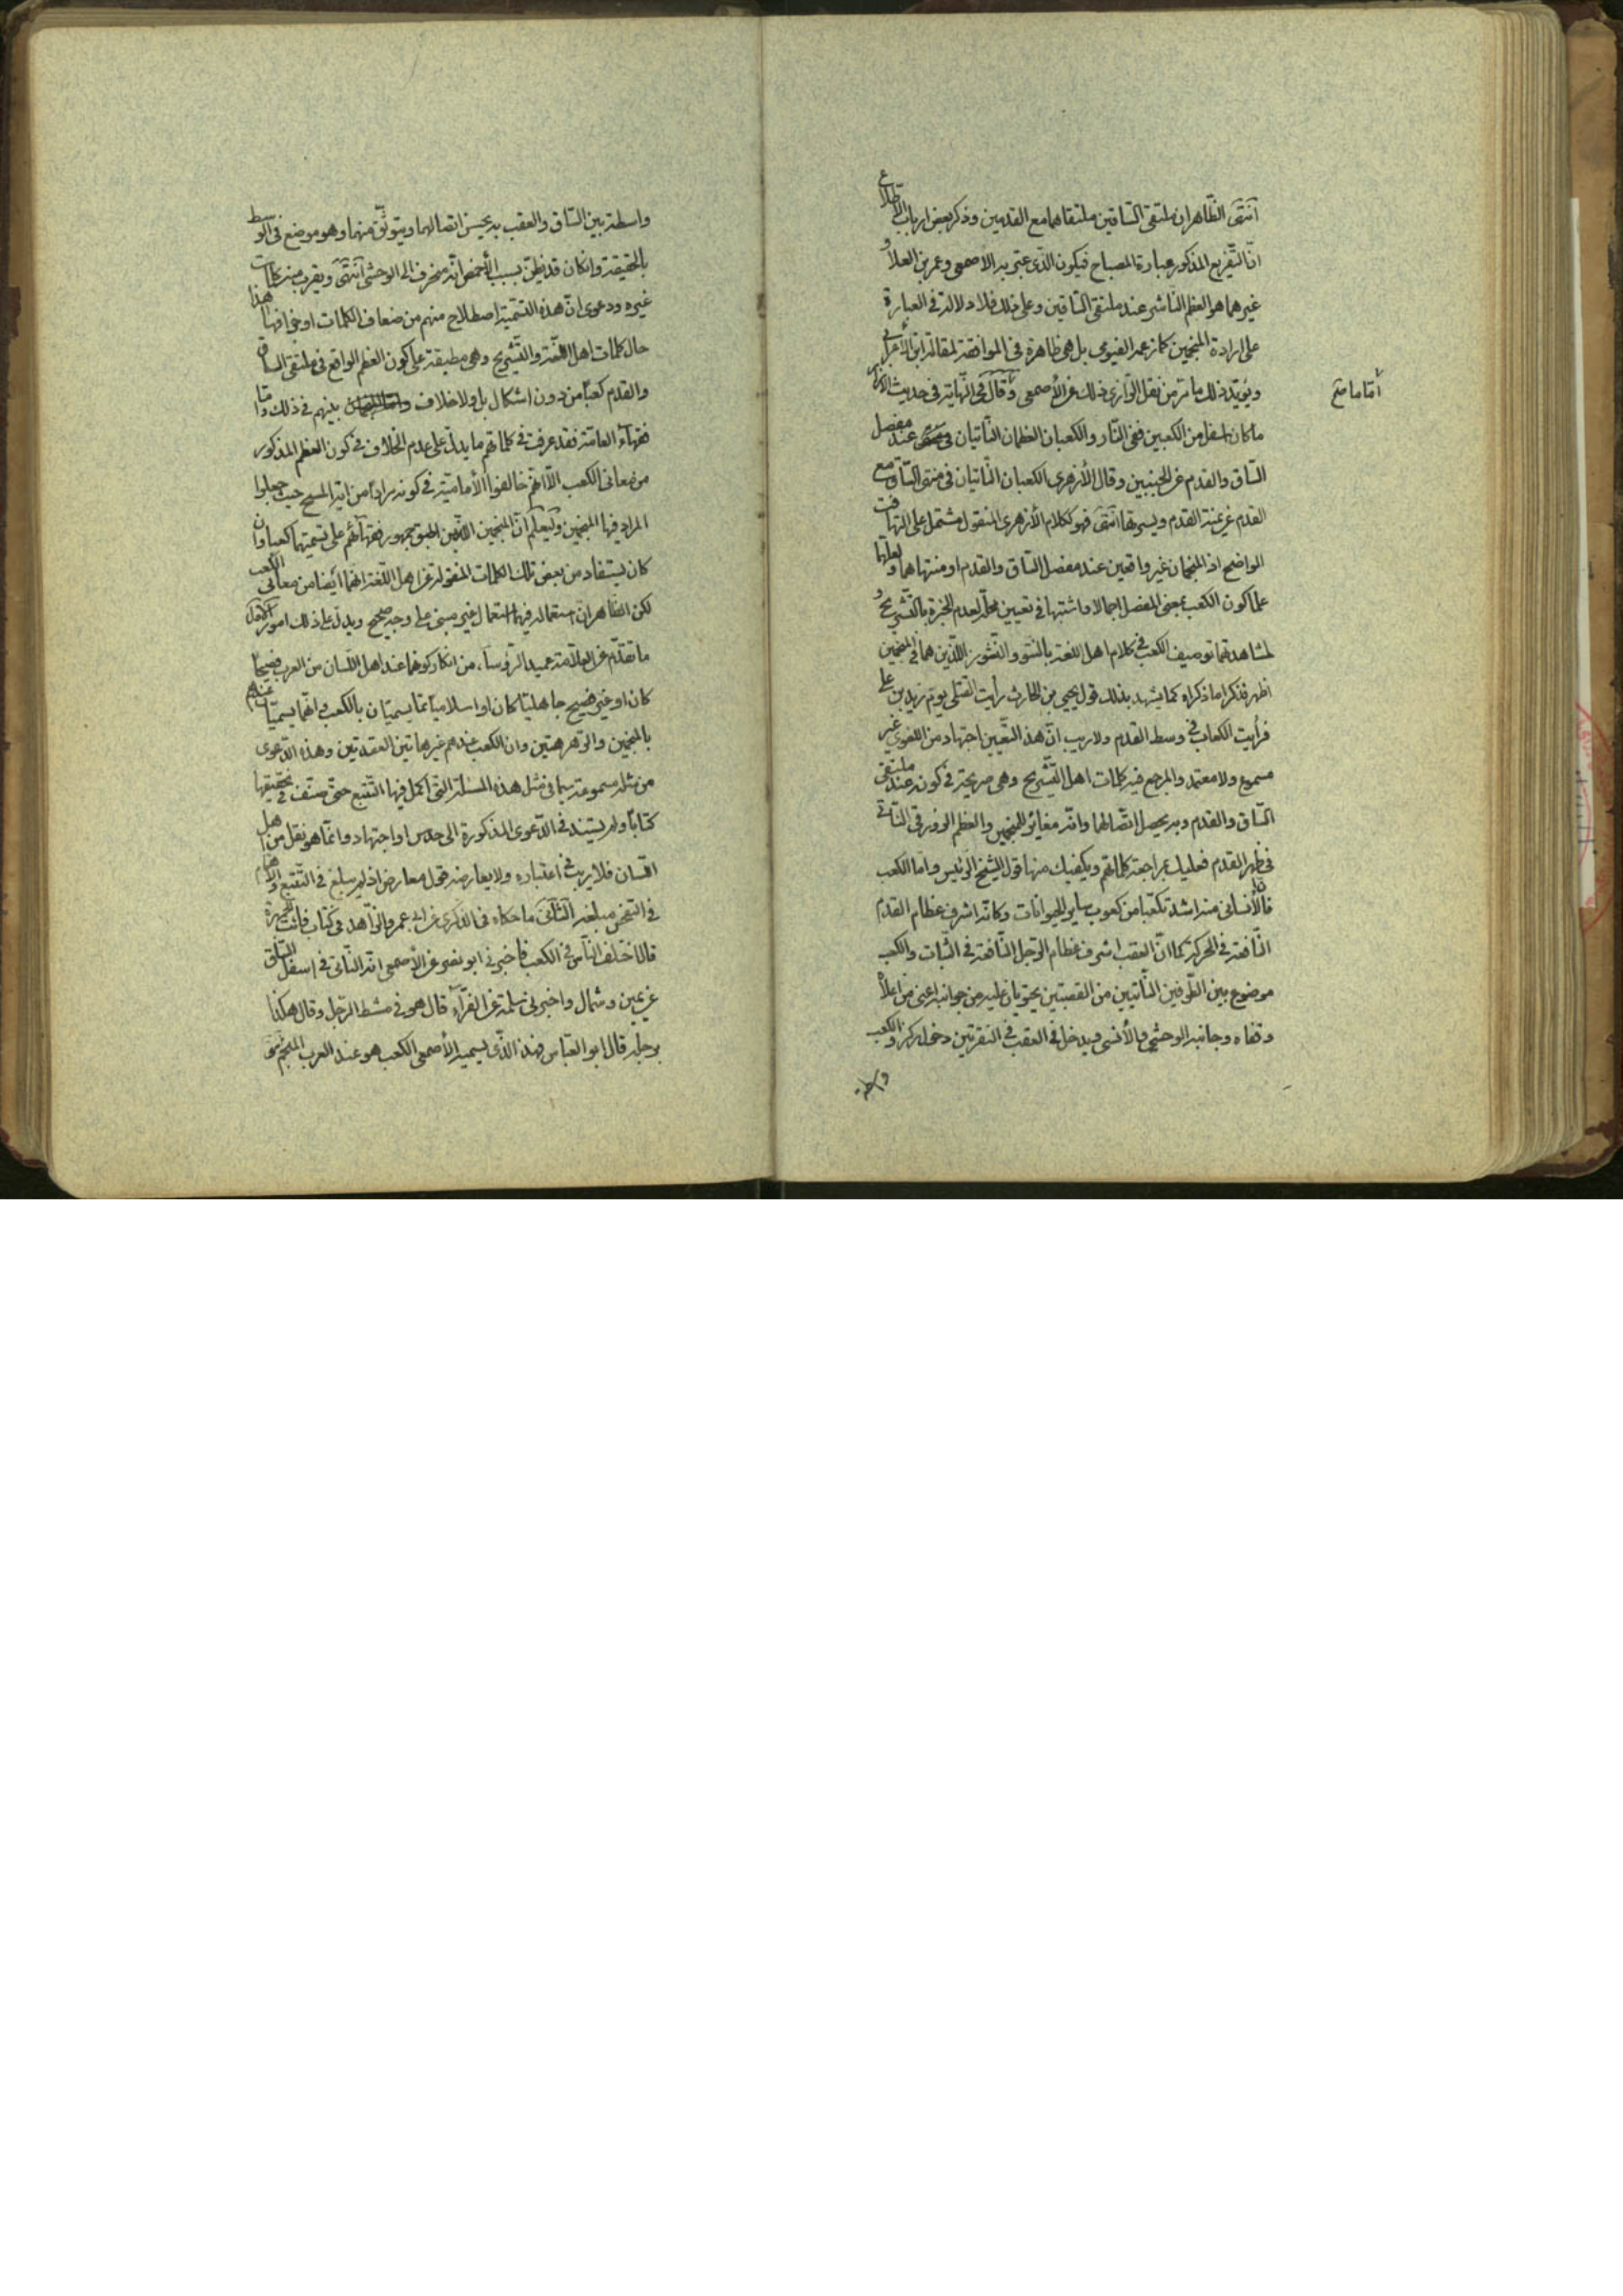 انتهى الظاهران ملتقى الساقين ملتقاهما مع القدمين وذكر بعض ارباب الاطلاع
انّ التفريع المذكور عبارة المصباح فيكون الذى عبّر به الأصمعى وعمر بن العلاء و
غيرهما هو العظم الناشز عند ملتقى الساقين وعلى ذلك فلا دلالة فى العبارة
على ارادة المنجمين كما زعمه الفيومى بل هى ظاهرة فى الموافقة لمقالة ابن الأعرابى
ويؤيد ذلك ما مر من نقل الرازى ذلك عن الأصمعى وقال فى النهاية فى حديث الازار
ما كان اسفل من الكعبين ففى النار والكعبان العظمان الناتيان عند مفصل
الساق والقدم عن الجنبين وقال الأزهرى الكعبان الناتيان فى منتهى الساق مع
القدم عن يمنة القدم ويسرتها انتهى فهو ككلام الأزهرى المنقول مشتمل على التهافت
الواضح اذ المنجمان غير واقعين عند مفصل الساق والقدم او منتهاهما ولعلهما
علما كون الكعب بمعنى المفصل اجمالا واشتبها فى تعيين محله لعدم الخبرة بالتشريح و
لمشاهدتهما توصيف الكعب فى كلام اهل اللغة بالنتو والنشوز اللذين هما فى المنجمين
اظهر فذكرا ما ذكراه كما يشهد بذلك قول يحيى بن الحارث رأيت القتلى يوم زيد بن على
فرأيت الكعاب فى وسط القدم ولا ريب انّ هذا التعيين اجتهاد من اللغوى غير
مسموع ولا معتمد والمرجع فيه كلمات اهل التشريح وهى صريحة فى كونه عند ملتقى
الساق والقدم وبه يحصل اتصالهما وانه مغائر للمنجمين والعظم الزورقى الناتى
فى ظهر القدم فعليك بمراجعة كلماتهم ويكفيك منها قول الشيخ الرئيس واما الكعب
فان الأنسانى منه اشد تكعبا من كعوب ساير الحيوانات وكانه اشرف عظام القدم
النافعة فى الحركة كما انّ العقب اشرف عظام الرّجل النافعة فى الثبات والكعب
موضوع بين الطرفين الناتيين من القصبتين يحتويان عليه من جوانبه اعنى من اعلاه
وقفاه وجانبيه الوحشى والأنسى ويدخل فى العقب فى النقرتين دخول ركز والكعب
واسطة
أمّا ما صح
واسطة بين الساق والعقب به يحسن اتصالهما ويتوثّق منهما وهو موضع فى الوسط
بالحقيقة وان كان قد يظن بسبب الأخمص انّه منحرف الى الوحشى انتهى ويقرب منه كلمات
غيره ودعوى انّ هذه التسمية اصطلاح منهم من ضعاف الكلمات او خرافتها هذا
حال كلمات اهل اللغة والتشريح وهى مطبقة على كون العظم الواقع فى ملتقى الساق
والقدم كعبا من دون اشكال بل ولا خلاف بينهم فى ذلك وامّا
فقهاء العامّة فقد عرفت فى كلماتهم ما يدل على عدم الخلاف فى كون العظم المذكور
من معانى الكعب الّا انهم خالفوا الأمامية فى كونه مرادا من اية المسح حيث جعلوا
المراد فيها المنجمين وليعلم انّ المنجمين اللذين اطبق جمهور فقهائهم على تسميتهما كعبا وان
كان يستفاد من بعض تلك الكلمات المنقولة عن اهل اللغة انهما ايضا من معانى الكعب
لكن الظاهر انّ استعماله فيهما استعمال غير مبنى على وجه صحيح ويدل على ذلك امور الأول
ما تقدّم عن العلامة عميد الرؤساء من انكار كونهما عند اهل اللسان من العرب فصيحا
كان او غير فصيح جاهليا كان او اسلاميا ممّا يسميّان بالكعب وانهما يسميّان عندهم
بالمنجمين والرهرهتين وان الكعب عندهم غير هاتين العقدتين وهذه الدعوى
من مثله مسموعة سيما فى مثل هذه المسئلة التى اكمل فيها التتبع حتى صنّف فى تحقيقها
كتابا ولم يستند فى الدّعوى المذكورة الى حدس او اجتهاد وانما هو نقل من اهل
اللسان فلا ريب فى اعتباره ولا يعارضه قول معارض اذ لم يبلغ فى التتبع والاهتمام
فى التفحص مبلغه الثانى ما حكاه فى الذكرى عن ابى عمر الزاهد فى كتاب فائت الجمهرة
قال اختلف الناس فى الكعب فأخبرنى ابو نصر عن الأصمعى انّه الناتى فى اسفل الساق
عن يمين وشمال واخبرنى سلمة عن الفراء قال هو فى مشط الرّجل وقال هكذا
برجله قال ابو العباس فهذا الذى يسميه الأصمعى الكعب هو عند العرب المنجم